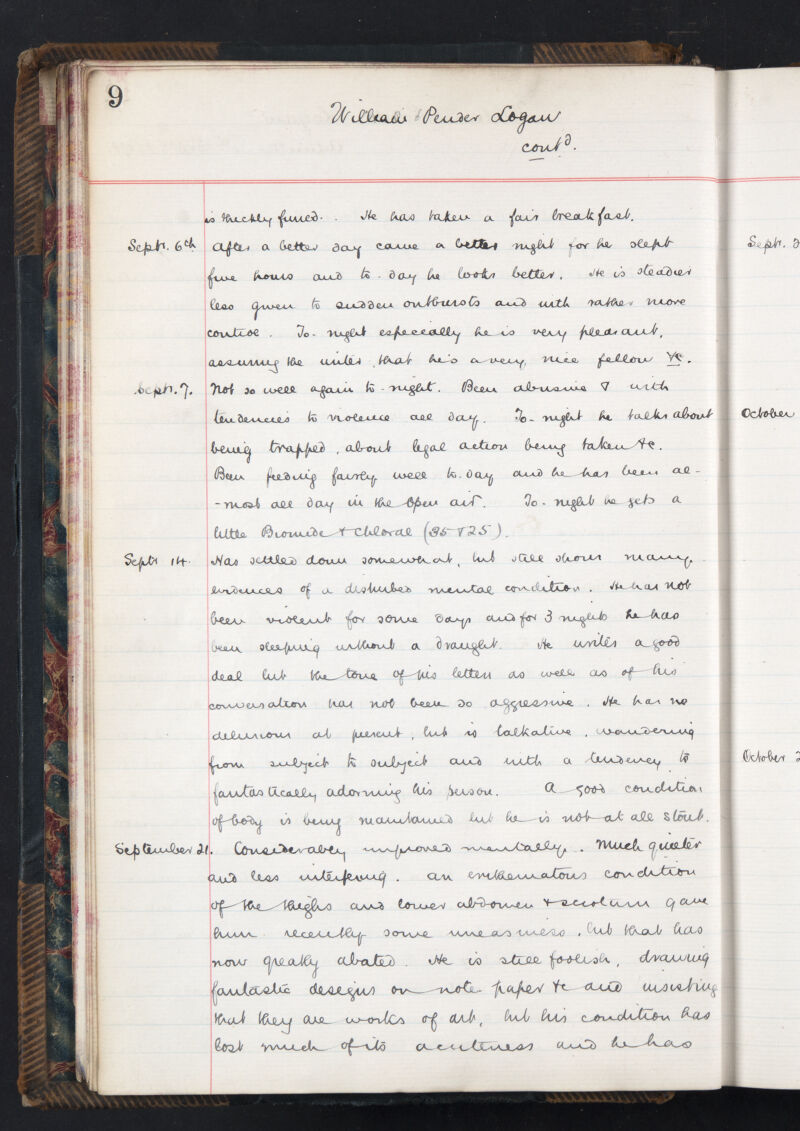 9
William Pender Logan
contd.
is thickly furred. He has taken a fair breakfast.
Septr. 6th After a better day came a better night for he slept
five hours and to-day he looks better. He is steadier
less given to sudden outbursts and with rather more
control. To-night especially he is very pleasant,
assuring the writer that he's a very nice fellow &c.
Septr. 7. Not so well again to-night. Been abusive & with
tendencies to violence all day. To-night he talks about
being trapped, about legal action being taken &c.
Been feeding fairly well to-day and he has been al-
-most all day in the open air. To-night he gets a
little Bromide & Chloral (35 & 25).
Septr 14. Has settled down somewhat, but still shows many
evidences of a disturbed mental condition. He has not
been violent for some days and for 3 nights he has
been sleeping without a draught. He writes a good
deal but the tone of his letters as well as of his
conversation has not been so aggressive. He has no
delusions at present, but is talkative, wandering
from subject to subject and with a tendency to
fantastically adorning his person. A good condition
of body is being maintained but he is not at all stout.
September 21. Considerably improved mentally. Much quieter
and less interfering. An erythematous condition
of the thighs and lower abdomen & scrotum gave
him recently some uneasiness, but that has
now greatly abated. He is still foolish, drawing
fantastic designs on note-paper &c and insisting
that they are works of art, but his condition has
lost much of its acuteness and he has
Septr.
October
October